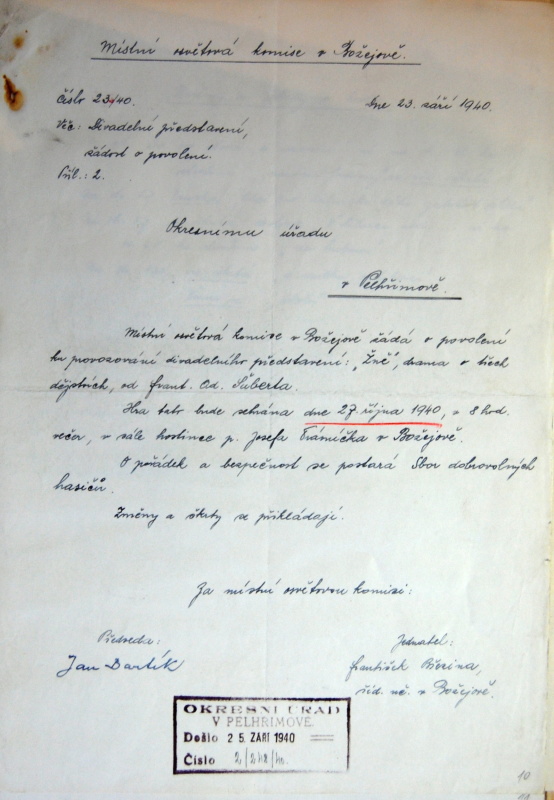 Místní osvětová komise v Božejově.
Číslo 23/40.
Dne 23. září 1940.
Věc: Divadelní představení,
žádost o povolení.
Příl.: 2.
Okresnímu úřadu
v Pelhřimově.
Místní osvětová komise v Božejově žádá o povolení
ku provozování divadelního představení: „Žně", drama o třech
dějstvích, od Frant. Ad. Šuberta.
Hra tato bude sehrána dne 27. října 1940, v 8 hod.
večer, v sále hostince p. Josefa Trávníčka v Božejově.
O pořádek a bezpečnost se postará Sbor dobrovolných
hasičů.
Změny a škrty se přikládají.
Za místní osvětovou komisi:
Předseda:
Jan Bartík
Jednatel:
František Březina,
říd. uč. v Božejově.
OKRESNÍ ÚŘAD
V PELHŘIMOVĚ.
Došlo 25. ZÁŘÍ 1940
Číslo
10